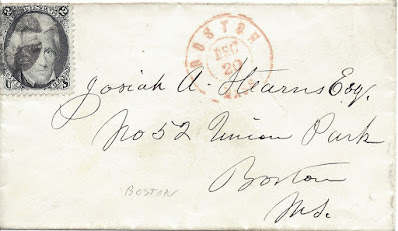 2 2
U S
BOSTON
DEC
20
MASS
Josiah A. Stearns Esq.
No 52 Union Park
Boston
Ms.
BOSTON